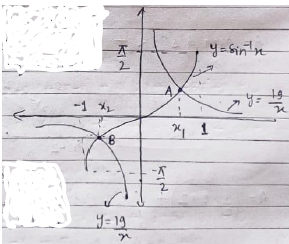 π/2
y = sin⁻¹x
A
y = 19/x
-1 x₂
x₁ 1
B
-π/2
y = 19/x